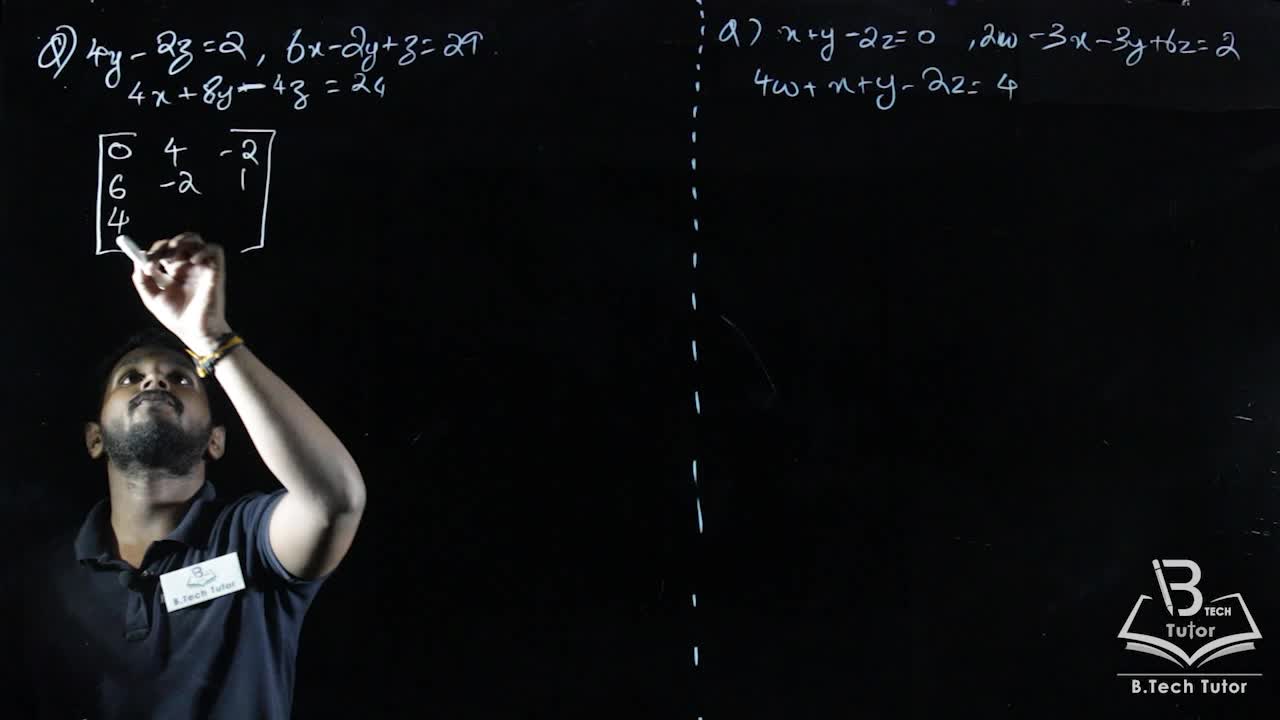 Q) 4y - 2z = 2, 6x - 2y + z = 29
4x + 8y - 4z = 24
0 4 -2
6 -2 1
4
Q) x + y - 2z = 0, 2w - 3x - 3y + 6z = 2
4w + x + y - 2z = 4
B
B.Tech Tutor
B
TECH
Tutor
B.Tech Tutor